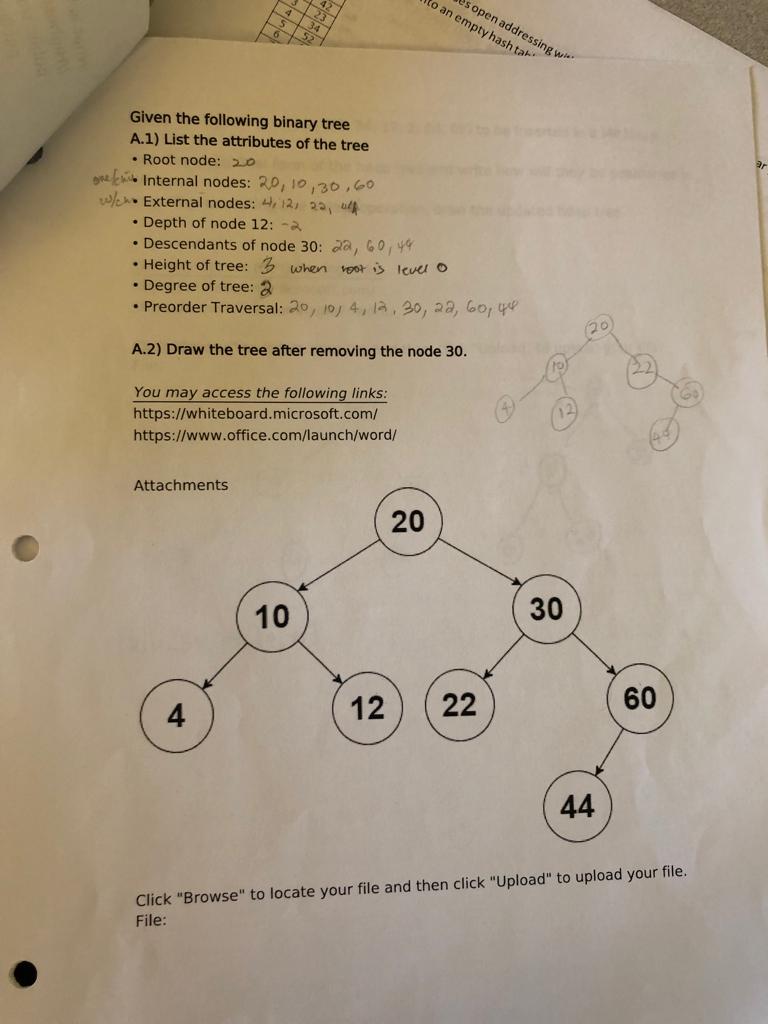 42
3 23
4 34
5 52
6
es open addressing
to an empty hash
Given the following binary tree
A.1) List the attributes of the tree
• Root node: 20
• Internal nodes: 20, 10, 30, 60
• External nodes: 4, 12, 22, 44
• Depth of node 12: -2
• Descendants of node 30: 22, 60, 44
• Height of tree: 3 when root is level 0
• Degree of tree: 2
• Preorder Traversal: 20, 10, 4, 12, 30, 22, 60, 44
A.2) Draw the tree after removing the node 30.
20
10 22
60
4 12
44
You may access the following links:
https://whiteboard.microsoft.com/
https://www.office.com/launch/word/
Attachments
20
10 30
4 12 22 60
44
Click "Browse" to locate your file and then click "Upload" to upload your file.
File: